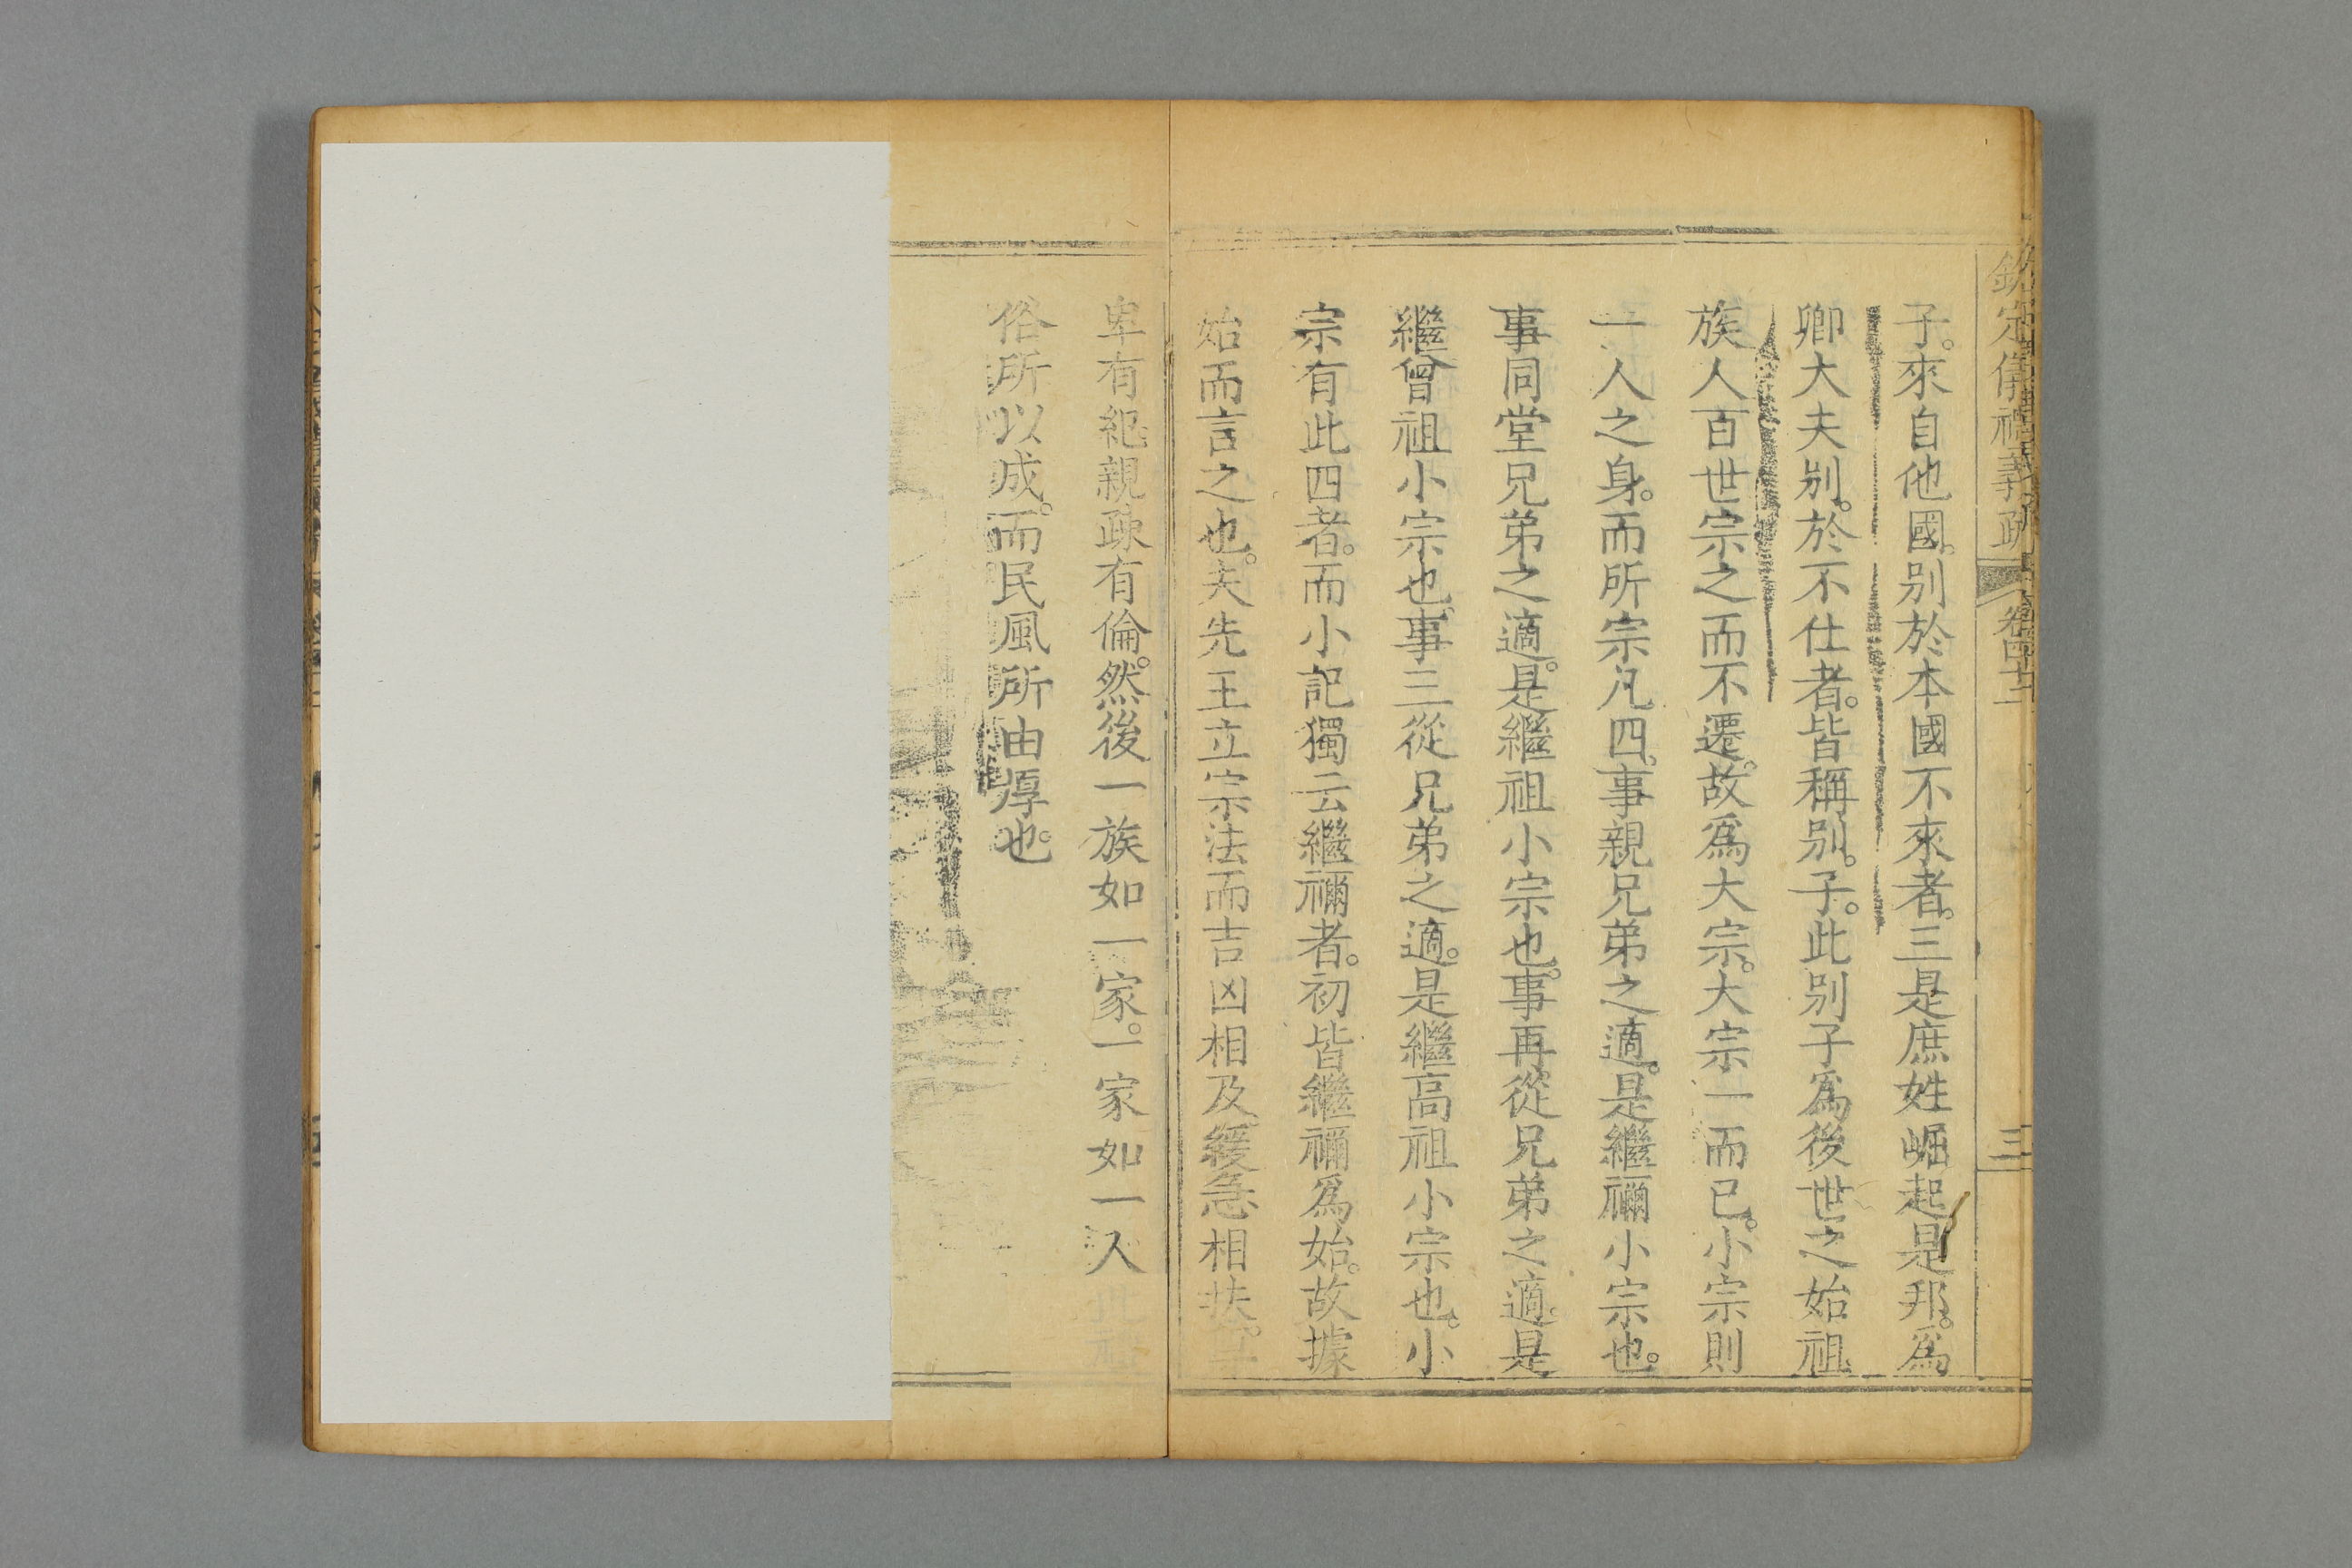 欽定儀禮義疏 卷四十二 三
子。來自他國。别於本國不來者。三是庶姓崛起是邦。爲
卿大夫别。於不仕者。皆稱别。子。此别子爲後世之始祖
族人百世宗之而不遷。故爲大宗。大宗一而已。小宗則
一人之身。而所宗凡四。事親兄弟之適。是繼禰小宗也。
事同堂兄弟之適。是繼祖小宗也。事再從兄弟之適。是
繼曾祖小宗也。事三從兄弟之適。是繼高祖小宗也。小
宗有此四者。而小記獨云繼禰者。初皆繼禰爲始。故據
始而言之也。夫先王立宗法而吉凶相及緩急相扶。
卑有紀親疎有倫。然後一族如一家。一家如一人
俗所以成。而民風所由厚也。